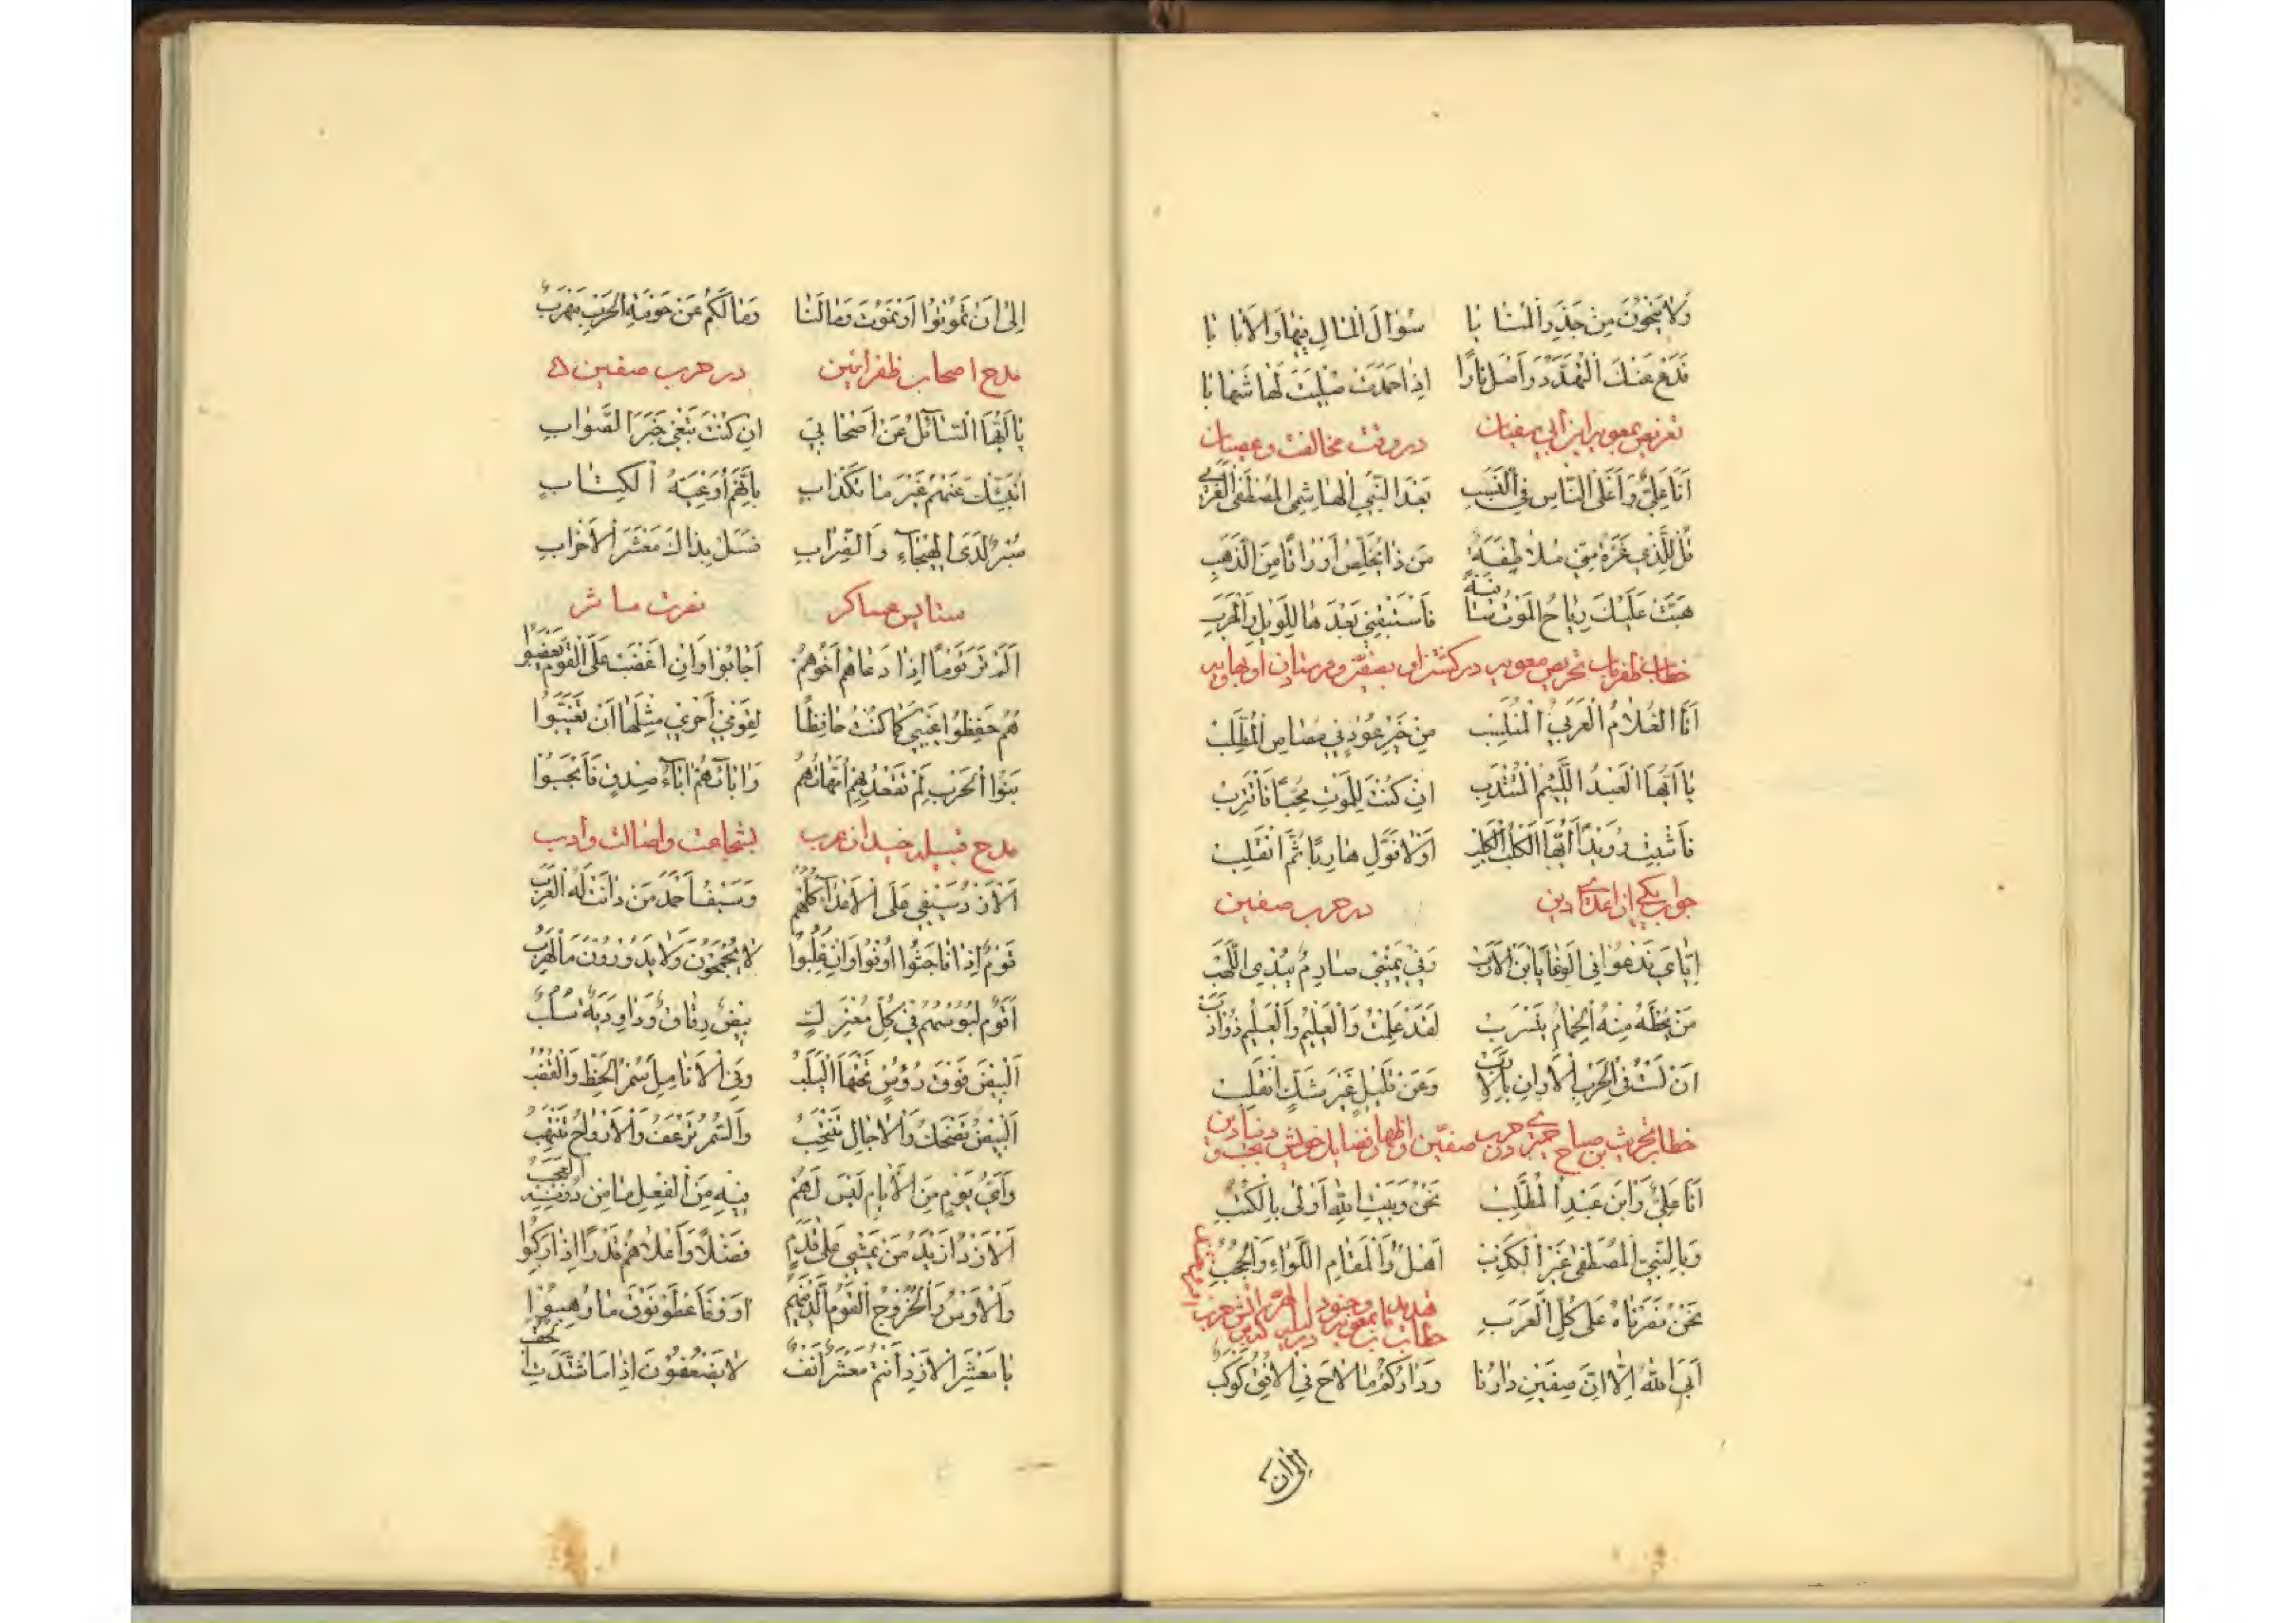 وَلَا يَنْجُونَ مِنْ حَذَرِ الْمَنَايَا سُؤَالَ الْمَالِ فِيهَا وَالْإِيَابَا
فَدَعْ عَنْكَ التَّهَدُّدَ وَاصْلَ نَارًا إِذَا خَمَدَتْ صَلِيتَ لَهَا شِهَابَا
تعریض بمعویه ابن ابی سفیان در وقت مخالفت و عصیان
أَنَا عَلِيٌّ وَأَعْلَى النَّاسِ فِي النَّسَبِ بَعْدَ النَّبِيِّ الْهَاشِمِيِّ الْمُصْطَفَى الْعَرَبِي
قُلْ لِلَّذِي غَرَّهُ مِنِّي مُلَاطِفَةٌ مَنْ ذَا يُخَلِّصُ أَوْرَاقًا مِنَ الذَّهَبِ
هَبَّتْ عَلَيْكَ رِيَاحُ الْمَوْتِ سَافِيَةً فَاسْتَبْقِنِي بَعْدَهَا لِلْوَيْلِ وَالْحَرَبِ
خطاب ظفریاب بحریص معویه در کشتن او بصفین و فرستادن او بهاویه
أَنَا الْغُلَامُ الْعَرَبِيُّ الْمُنْتَسِبْ مِنْ خَيْرِ عُودٍ فِي مُصَاصِ الْمُطَّلِبْ
يَا أَيُّهَا الْعَبْدُ اللَّئِيمُ الْمُنْتَدِبْ إِنْ كُنْتَ لِلْمَوْتِ مُحِبًّا فَاقْتَرِبْ
فَاثْبُتْ رُوَيْدًا أَيُّهَا الْكَلْبُ الْكَلِبْ أَوْ لَا فَوَلِّ هَارِبًا ثُمَّ انْقَلِبْ
جواب یکی از اعدای دین در حرب صفین
إِيَّايَ تَدْعُو فِي الْوَغَا يَا ابْنَ الْأَرَبْ وَفِي يَمِينِي صَارِمٌ يُبْدِي اللَّهَبْ
مَنْ يُحْطِهِ مِنْهُ الْحِمَامُ يَنْسَرِبْ لَقَدْ عَلِمْتَ وَالْعَلِيمُ وَالْعَلِيمُ ذُو أَدَبْ
أَنْ لَسْتُ فِي الْحَرْبِ الْأَدَانِ بِالْأَرَبْ وَعَنْ قَلِيلٍ غَيْرَ شَكٍّ أَنْقَلِبْ
خطاب بحریث بن صباح حمیری در حرب صفین و اظهار فضایل خویش
أَنَا عَلِيٌّ وَابْنُ عَبْدِ الْمُطَّلِبْ نَحْنُ وَبَيْتِ اللَّهِ أَوْلَى بِالْكُتُبْ
وَبِالنَّبِيِّ الْمُصْطَفَى غَيْرِ الْكَذِبْ أَهْلُ وَالْمَقَامِ اللِّوَاءِ وَالْحُجُبْ
نَحْنُ نَصَرْنَاهُ عَلَى كُلِّ الْعَرَبِ
أَبَى اللَّهُ إِلَّا أَنَّ صِفِّينَ دَارُنَا وَدَارُكُمْ مَا لَاحَ فِي الْأُفْقِ كَوْكَبُ
إلى أن
إِلَى أَنْ تَمُوتُوا أَوْ نَمُوتَ وَمَا لَنَا وَمَا لَكُمْ عَنْ حَوْمَةِ الْحَرْبِ مَهْرَبُ
مدح اصحاب ظفر آئین در حرب صفین
يَا أَيُّهَا السَّائِلُ عَنْ أَصْحَابِي إِنْ كُنْتَ تَبْغِي خَبَرَ الصَّوَابِ
أُنْبِئْكَ عَنْهُمْ غَيْرَ مَا تَكْذَابِ بِأَنَّهُمْ أَوْعِيَةُ الْكِتَابِ
صُبْرٌ لَدَى الْهَيْجَاءِ وَالضِّرَابِ فَسَلْ بِذَاكَ مَعْشَرَ الْأَحْزَابِ
ستایس عساکر نصرت مآثر
أَلَمْ تَرَ قَوْمًا إِذَا دَعَاهُمْ أَخُوهُمْ أَجَابُوا وَإِنْ أَغْضَبْ عَلَى الْقَوْمِ يَغْضَبُوا
هُمْ حَفِظُوا غَيْبِي كَمَا كُنْتُ حَافِظًا لِقَوْمِي أُخْرَى مِثْلَهَا أَنْ تَغَيَّبُوا
بَنُو الْحَرْبِ لَمْ تَقْعُدْ بِهِمْ أُمَّهَاتُهُمْ وَآبَاؤُهُمْ آبَاءُ صِدْقٍ فَأَنْجَبُوا
مدح قبیله خیلدان عرب بشجاعت و اصالت و ادب
الْأَزْدُ سَيْفِي عَلَى الْأَعْدَاءِ كُلِّهِمُ وَسَيْفُ أَحْمَدَ مَنْ دَانَتْ لَهُ الْعَرَبُ
قَوْمٌ إِذَا فَاجَئُوا أَوْفُوا وَإِنْ غُلِبُوا لَا يُحْجِمُونَ وَلَا يَدْرُونَ مَا الْهَرَبُ
قَوْمٌ لَبُوسُهُمُ فِي كُلِّ مُعْتَرَكٍ بِيضٌ رِقَاقٌ وَدَاوُدِيَّةٌ سُلُبُ
الْبِيضُ فَوْقَ رُؤُسٍ تَحْتَهَا الْيَلَبُ وَفِي الْأَنَامِلِ سُمْرُ الْخَطِّ وَالْقُضُبُ
الْبِيضُ تَضْحَكُ وَالْآجَالُ تَنْتَحِبُ وَالسُّمْرُ تَرْعَفُ وَالْأَرْوَاحُ تُنْتَهَبُ
وَأَيُّ يَوْمٍ مِنَ الْأَيَّامِ لَيْسَ لَهُمْ فِيهِ مِنَ الْفِعْلِ مَا مِنْ دُونِهِ الْعَجَبُ
الْأَزْدُ أَزْيَدُ مَنْ يَمْشِي عَلَى قَدَمٍ فَضْلًا وَأَعْلَاهُمُ قَدْرًا إِذَا رَكِبُوا
وَالْأَوْسُ وَالْخَزْرَجُ الْقَوْمُ الَّذِينَ هُمُ آوَوْا فَأَعْطَوْا فَوْقَ مَا وُهِبُوا
يَا مَعْشَرَ الْأَزْدِ أَنْتُمْ مَعْشَرٌ أُنُفٌ لَا يَضْعُفُونَ إِذَا مَا اشْتَدَّتِ الْحِقَبُ